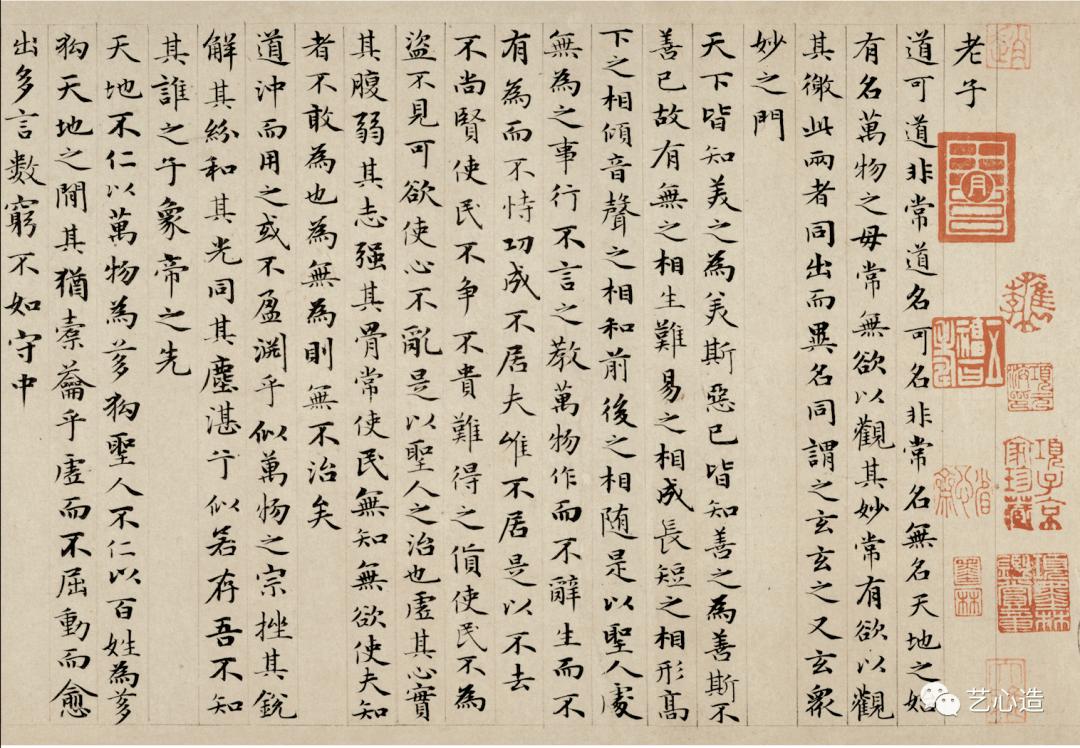 項子京家珍藏
項墨林鑑賞章
墨林
老子
道可道非常道名可名非常名無名天地之始
有名萬物之母常無欲以觀其妙常有欲以觀
其徼此兩者同出而異名同謂之玄玄之又玄衆
妙之門
天下皆知美之為美斯惡已皆知善之為善斯不
善已故有無之相生難易之相成長短之相形高
下之相傾音聲之相和前後之相随是以聖人處
無為之事行不言之教萬物作而不辭生而不
有為而不恃功成不居夫唯不居是以不去
不尚賢使民不争不貴難得之貨使民不為
盜不見可欲使心不亂是以聖人之治也虛其心實
其腹弱其志强其骨常使民無知無欲使夫知
者不敢為也為無為則無不治矣
道沖而用之或不盈淵乎似萬物之宗挫其銳
解其紛和其光同其塵湛兮似若存吾不知
其誰之子象帝之先
天地不仁以萬物為芻狗聖人不仁以百姓為芻
狗天地之間其猶橐籥乎虛而不屈動而愈
出多言數窮不如守中
艺心造